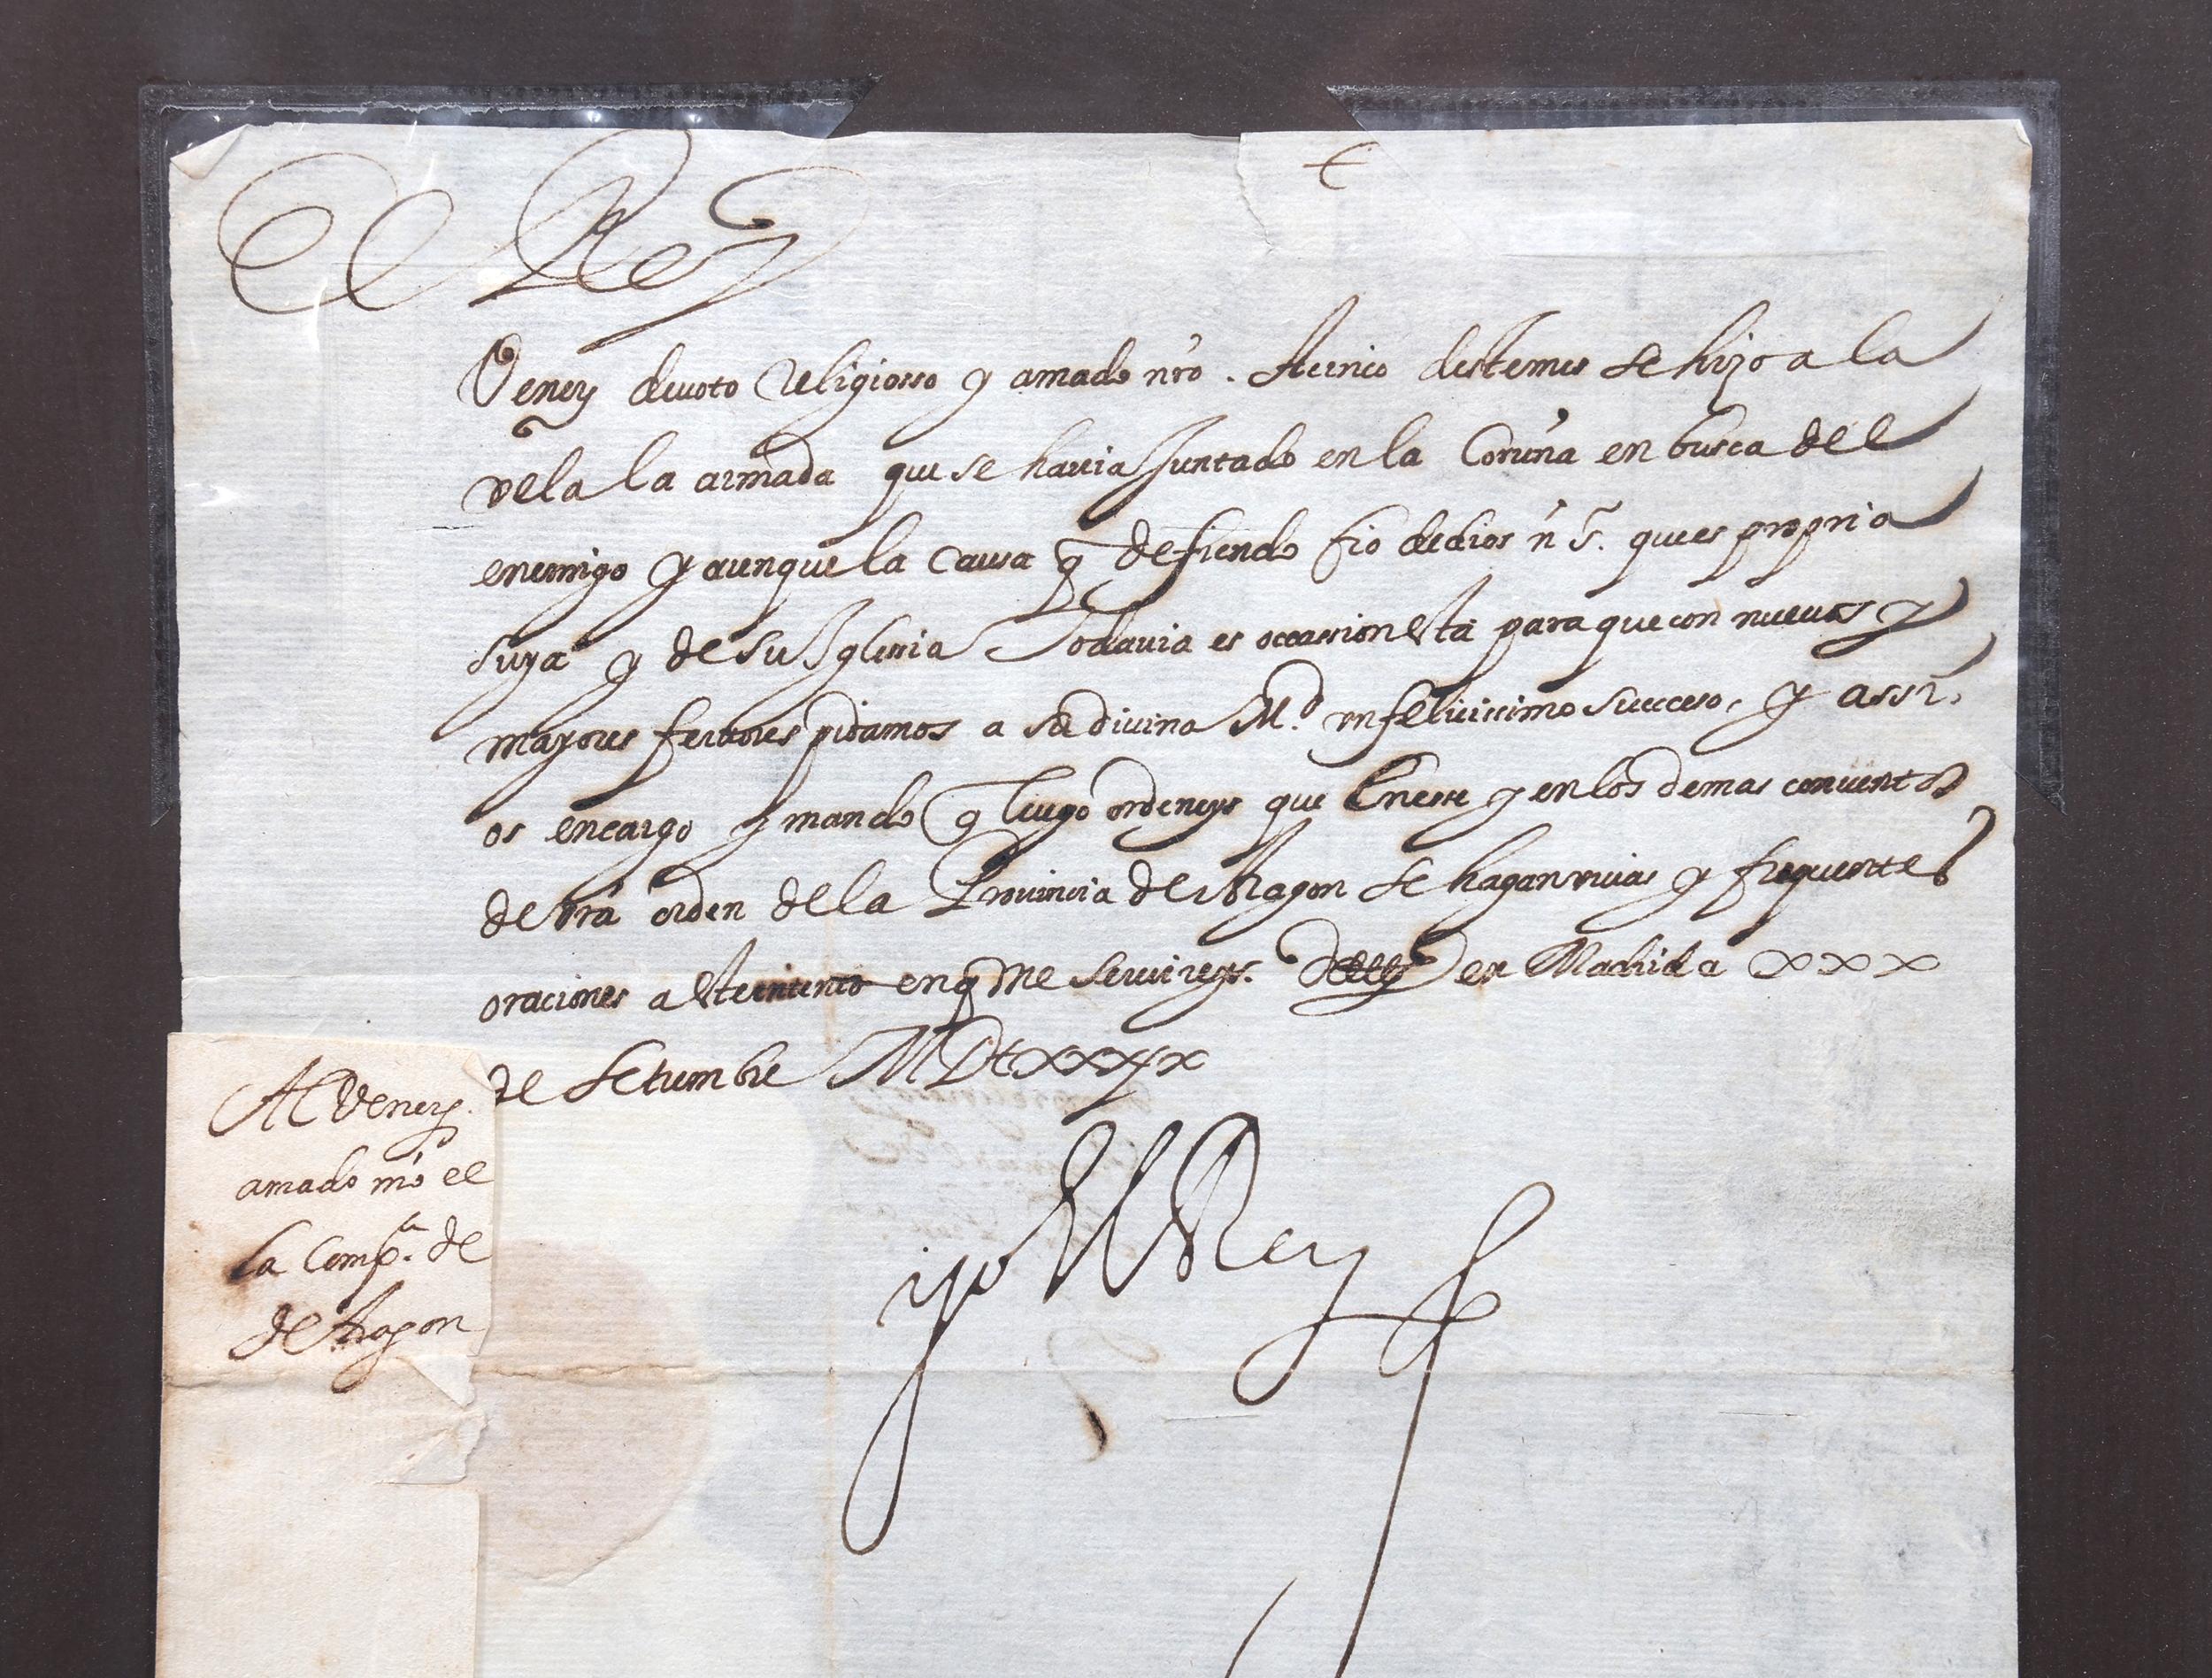 El Rey
Vener.e devoto religiosso y amado nr̃o. A cinco deste mes se hizo a la
vela la armada que se hauia Juntado en la Coruña en busca del
enemigo y aunque la causa q̃ defiendo fio de dios nr̃o S.r que es propria
suya y de su Iglesia Todauia es occasion esta para que con nueuos y
mayores feruores pidamos a su diuina M.d vn felicissimo sucçeso, y assi
os encargo y mando q̃ luego ordeneys que en esse y en los demas conuentos
de vr̃a orden de la Prouincia de Aragon se hagan viuas y frequentes
oraciones a este intento en q̃ me seruireys. en Madrid a XXX
de Setiembre MDCXXXIX
yo el Rey
Al Vener.e
amado nr̃o el
la Comp.a de
de Aragon